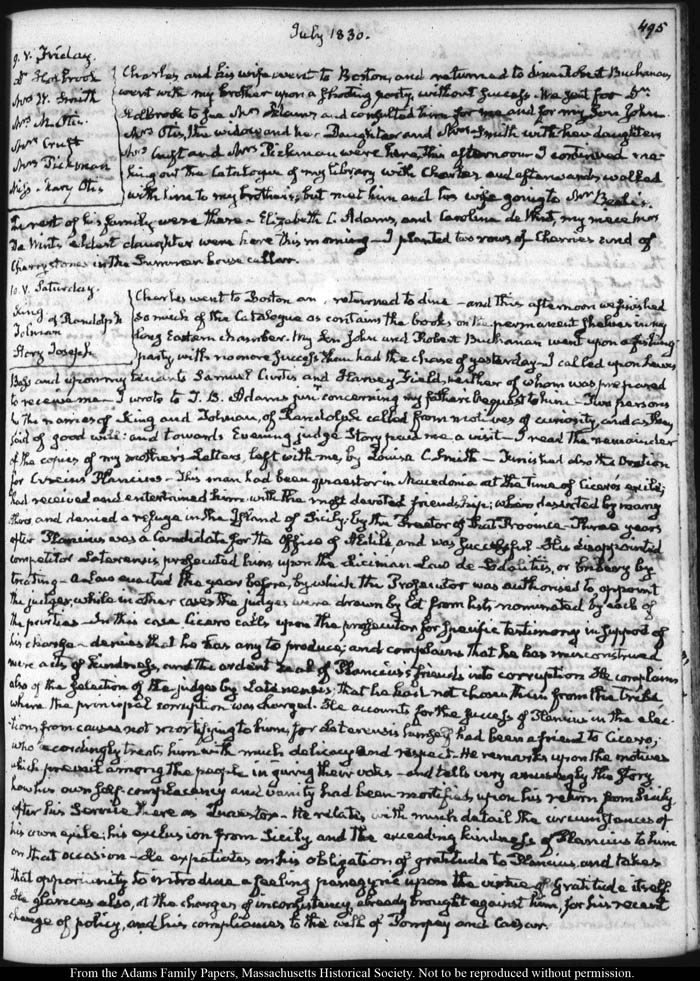 July 1830.
495
9. V. Friday.
Dr Holbrook
Mrs W. Smith
Mrs M. Otis.
Mrs Cruft
Mrs Pickman
Miss. Mary Otis
Charles, and his wife went to Boston, and returned to dine. Robert Buchanan
went with my brother upon a shooting party, without success. We sent for Dr
Holbrook to see Mrs Adams and consulted him for me and for my Son John.
Mrs Otis, the widow and her Daughter and Mrs Smith with her daughter,
Mrs Cruft and Mrs Pickman were here, this afternoon. I continued ma-
king out the Catalogue of my library with Charles and afterwards walked
with him to my brother's; but met him and his wife going to Mr Beale's.
The rest of his family were there. Elizabeth C. Adams, and Caroline de Wint, my niece Mrs
De Wint's eldest daughter were here this morning— I planted two rows of and of
Cherry stones in the Summer house cellar.
10. V. Saturday.
King of Randolph
Tolman
Story Joseph
Charles went to Boston an , returned to dine— and this afternoon we finished
so much of the Catalogue as contains the books on the permanent shelves in my
long Eastern chamber. My Son John and Robert Buchanan went upon a fishing
party, with no more success than had the chase of yesterday— I called upon Lewis
Bass and upon my tenants Samuel Curtis and Harvey Field, neither of whom was prepared
to receive me— I wrote to T. B. Adams junr concerning my father's bequest to him— Two persons
by the names of King and Tolman, of Randolph called from motives of curiosity, and as they
said of good will: and towards Evening judge Story paid me a visit— I read the remainder
of the copies of my mother's Letters, left with me, by Louisa C. Smith— Finished also the Oration
for Cnæius Plancius— This man had been quaestor in Macedonia at the time of Cicero's exile;
had received and entertained him with the most devoted friendship; when deserted by many
others, and denied a refuge in the Island of Sicily, by the Praetor of that Province— Three years
after Plancius was a Candidate for the Office of Aedile, and was successful— His disappointed
competitor Laterensis, prosecuted him upon the Licinian Law de Sodalitiis, or bribery by
treating— a Law enacted the year before, by which the Prosecutor was authorised to appoint
the judges, while in other cases the judges were drawn by lot from lists nominated by each of
the parties— In this case Cicero calls upon the prosecutor for specific testimony in support of
his charge— denies that he has any to produce; and complains that he has misconstrued
mere acts of kindness, and the ardent zeal of Plancius's friends into corruption— He complains
also of the selection of the judges by Laterensis; that he had not chosen them from the tribe
where the principal corruption was charged. He accounts for the success of Plancius in the elec-
tions from causes not mortifying to him; for Laterensis himself had been a friend to Cicero;
who accordingly treats him with much delicacy and respect— He remarks upon the motives
which prevail among the people in giving their votes— and tells very amusingly the story,
how his own self-complacency and vanity had been mortified, upon his return from Sicily
after his service there as Quaestor— He relates with much detail the circumstances of
his own exile; his exclusion from Sicily and the exceeding kindness of Plancius to him
on that occasion— He expatiates on his obligation of gratitude to Plancius, and takes
that opportunity to introduce a feeling panegyric upon the virtue of Gratitude itself.
He glances also, at the charges of inconsistency, already brought against him, for his recent
change of policy, and his compliances to the will of Pompey and Caesar.
From the Adams Family Papers, Massachusetts Historical Society. Not to be reproduced without permission.